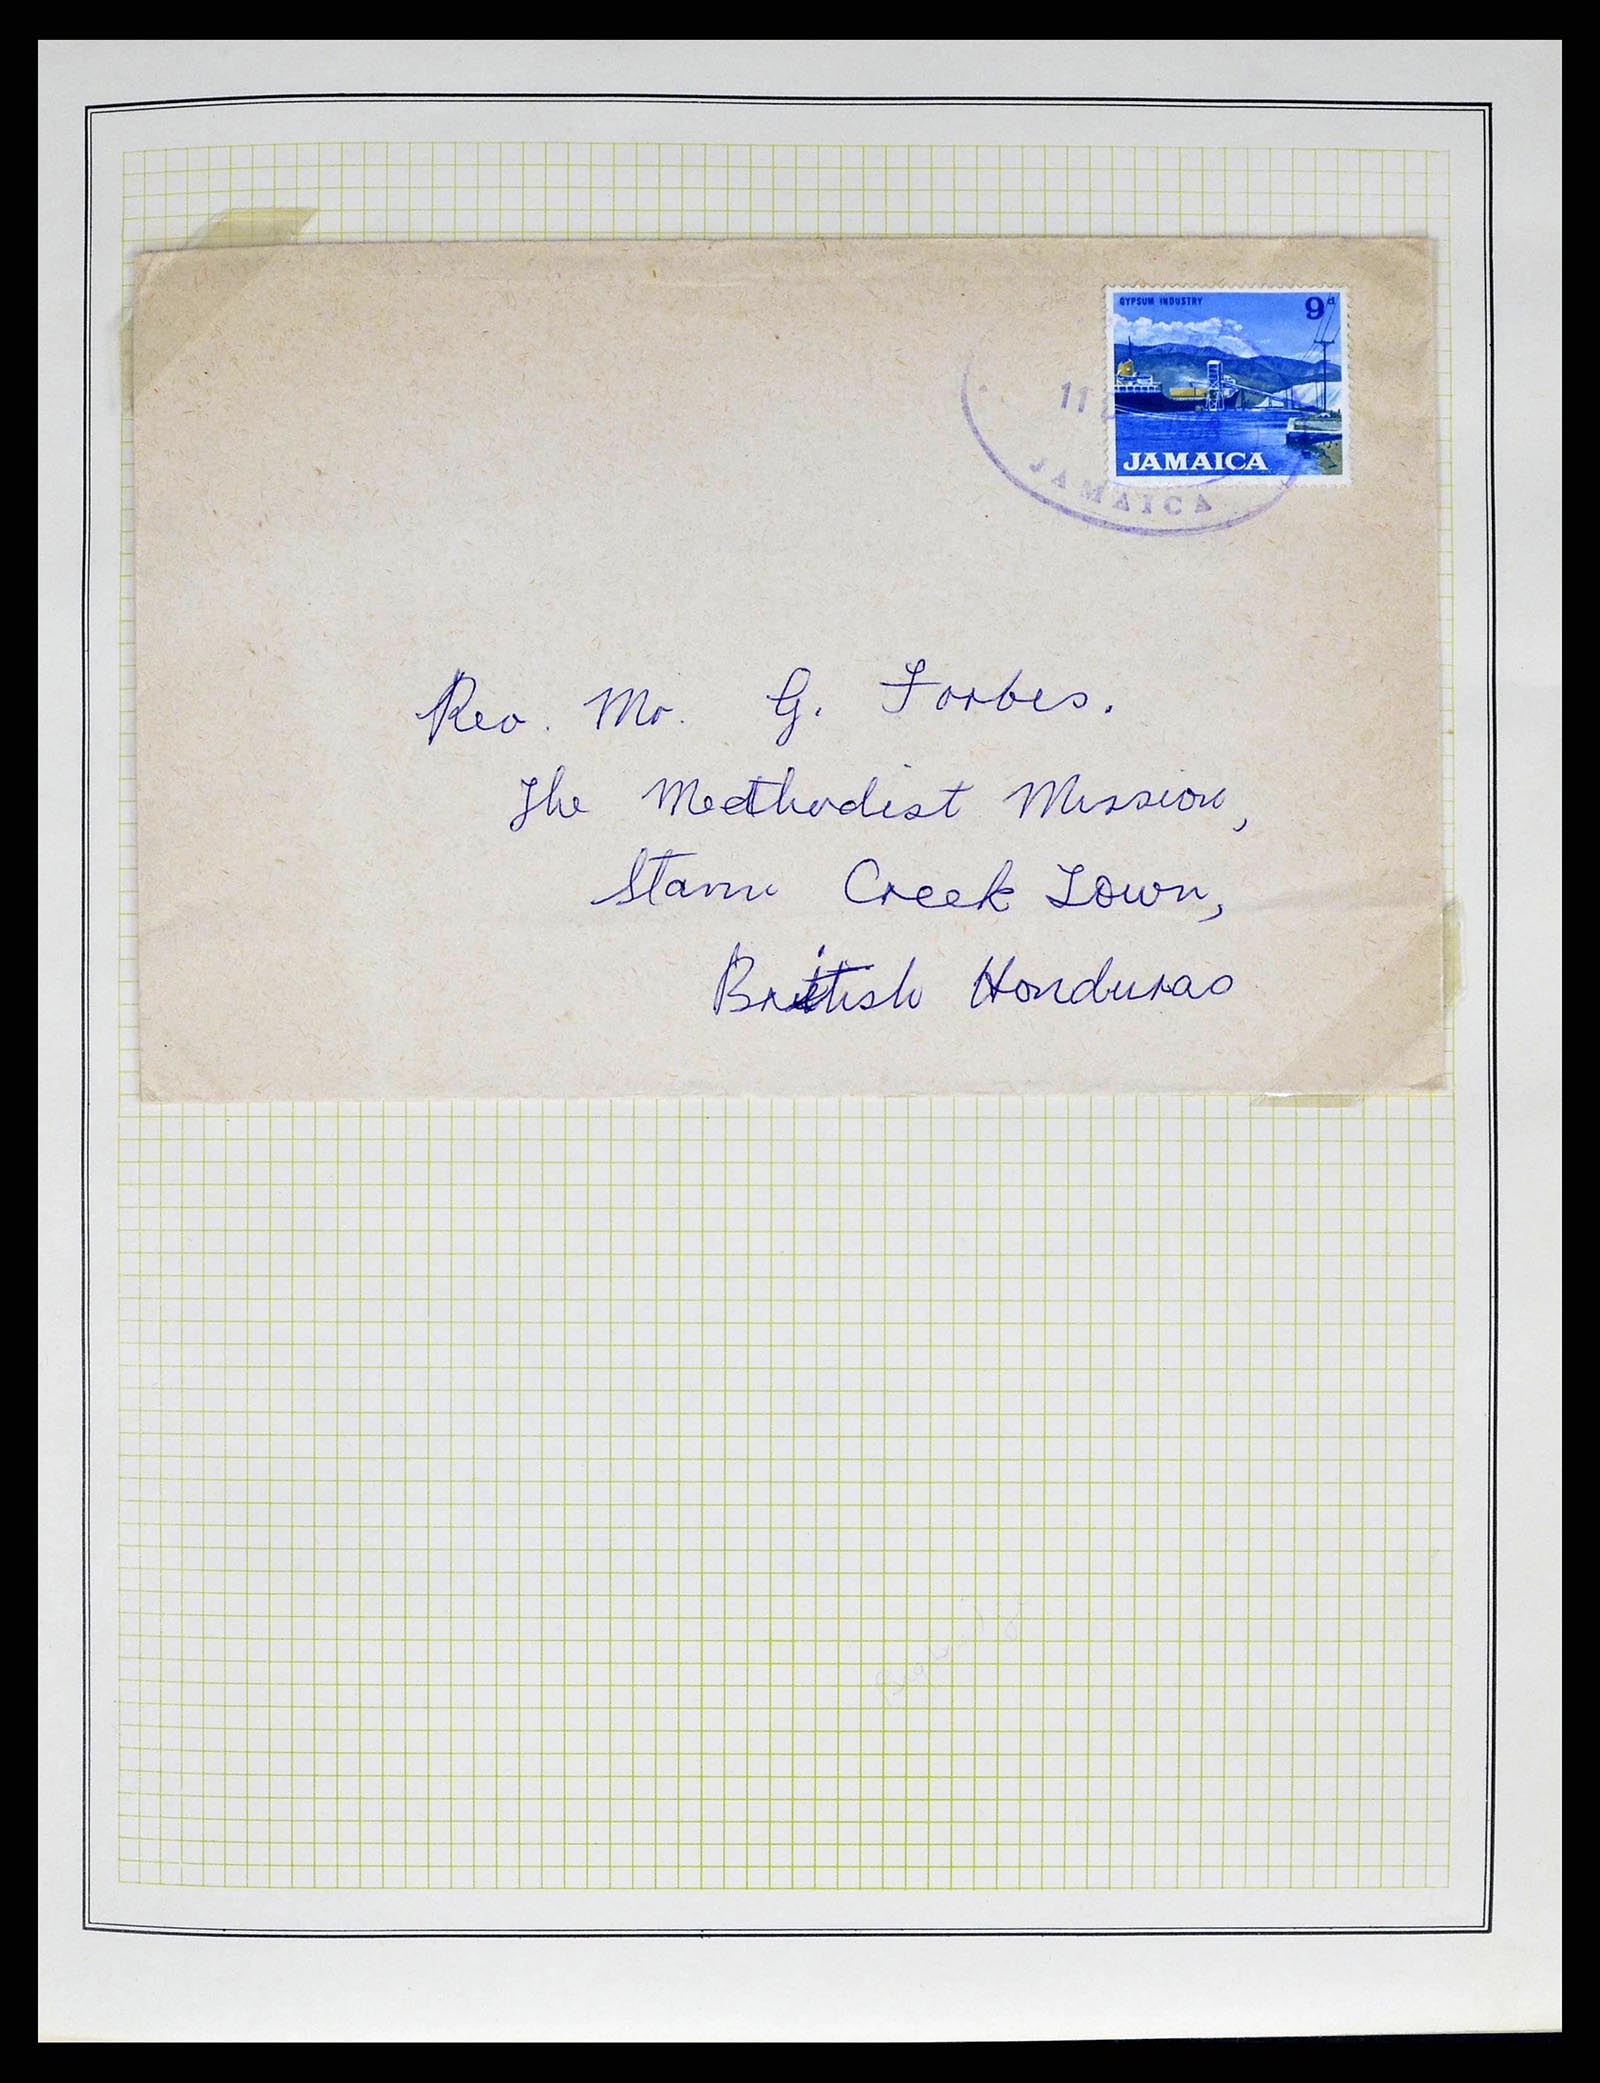 GYPSUM INDUSTRY 9d
JAMAICA
11
JAMAICA
Rev. Mr. G. Forbes.
The Medthodist Mission,
Stann Creek Town,
British Honduras